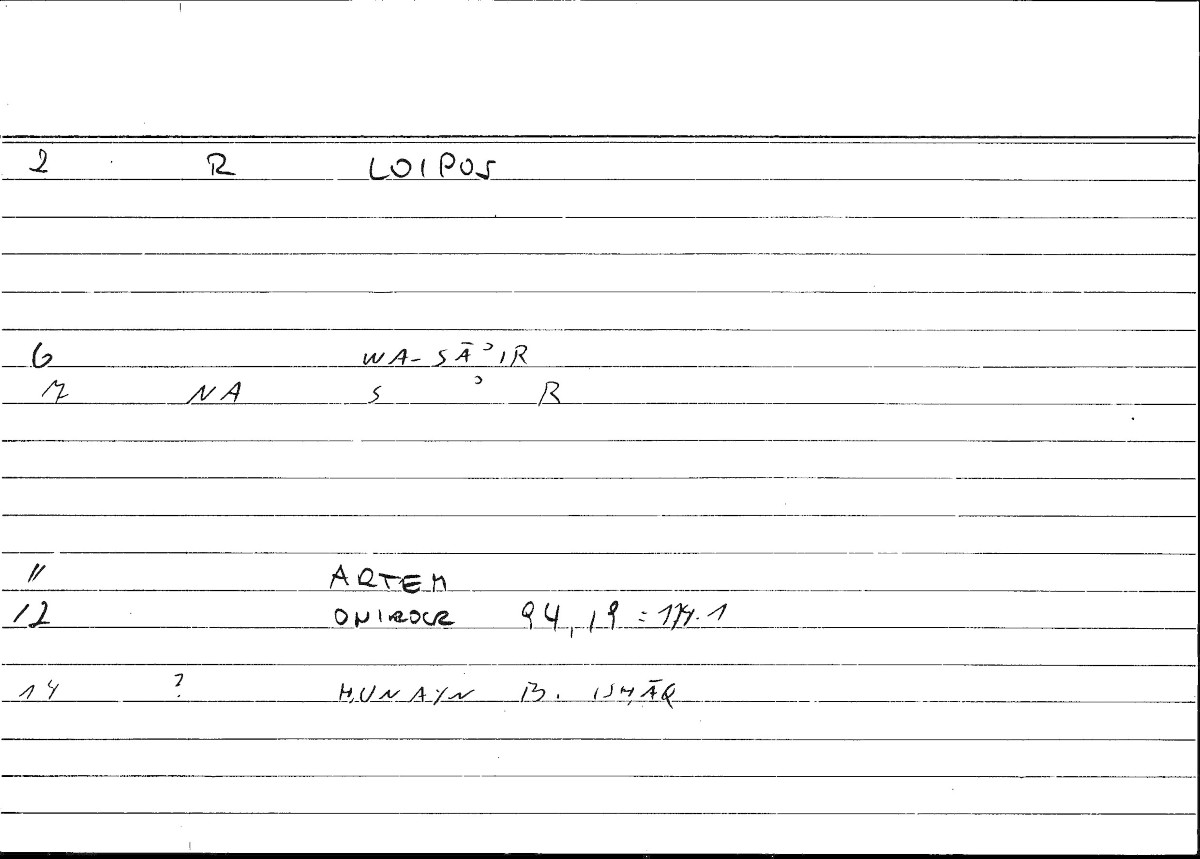 2 R LOIPOS
6 WA-SĀʾIR
7 NA S ʾ R
11 ARTEM
12 ONIROCR 94,19 = 174.1
14 ? ḤUNAYN B. ISḤĀQ